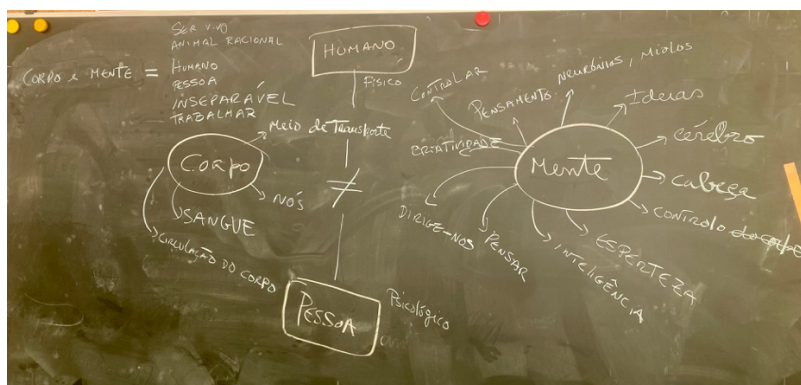 SER VIVO
ANIMAL RACIONAL
CORPO e MENTE =
HUMANO
PESSOA
INSEPARÁVEL
TRABALHAR
HUMANO
FÍSICO
≠
PESSOA
Psicológico
Corpo
Meio de Transporte
NÓS
SANGUE
CIRCULAÇÃO DO CORPO
Mente
CONTROLAR
PENSAMENTO
NEURÓNIOS, MIOLOS
Ideias
cérebro
cabeça
CONTROLO do corpo
ESPERTEZA
INTELIGÊNCIA
PENSAR
DIRIGE-NOS
CRIATIVIDADE